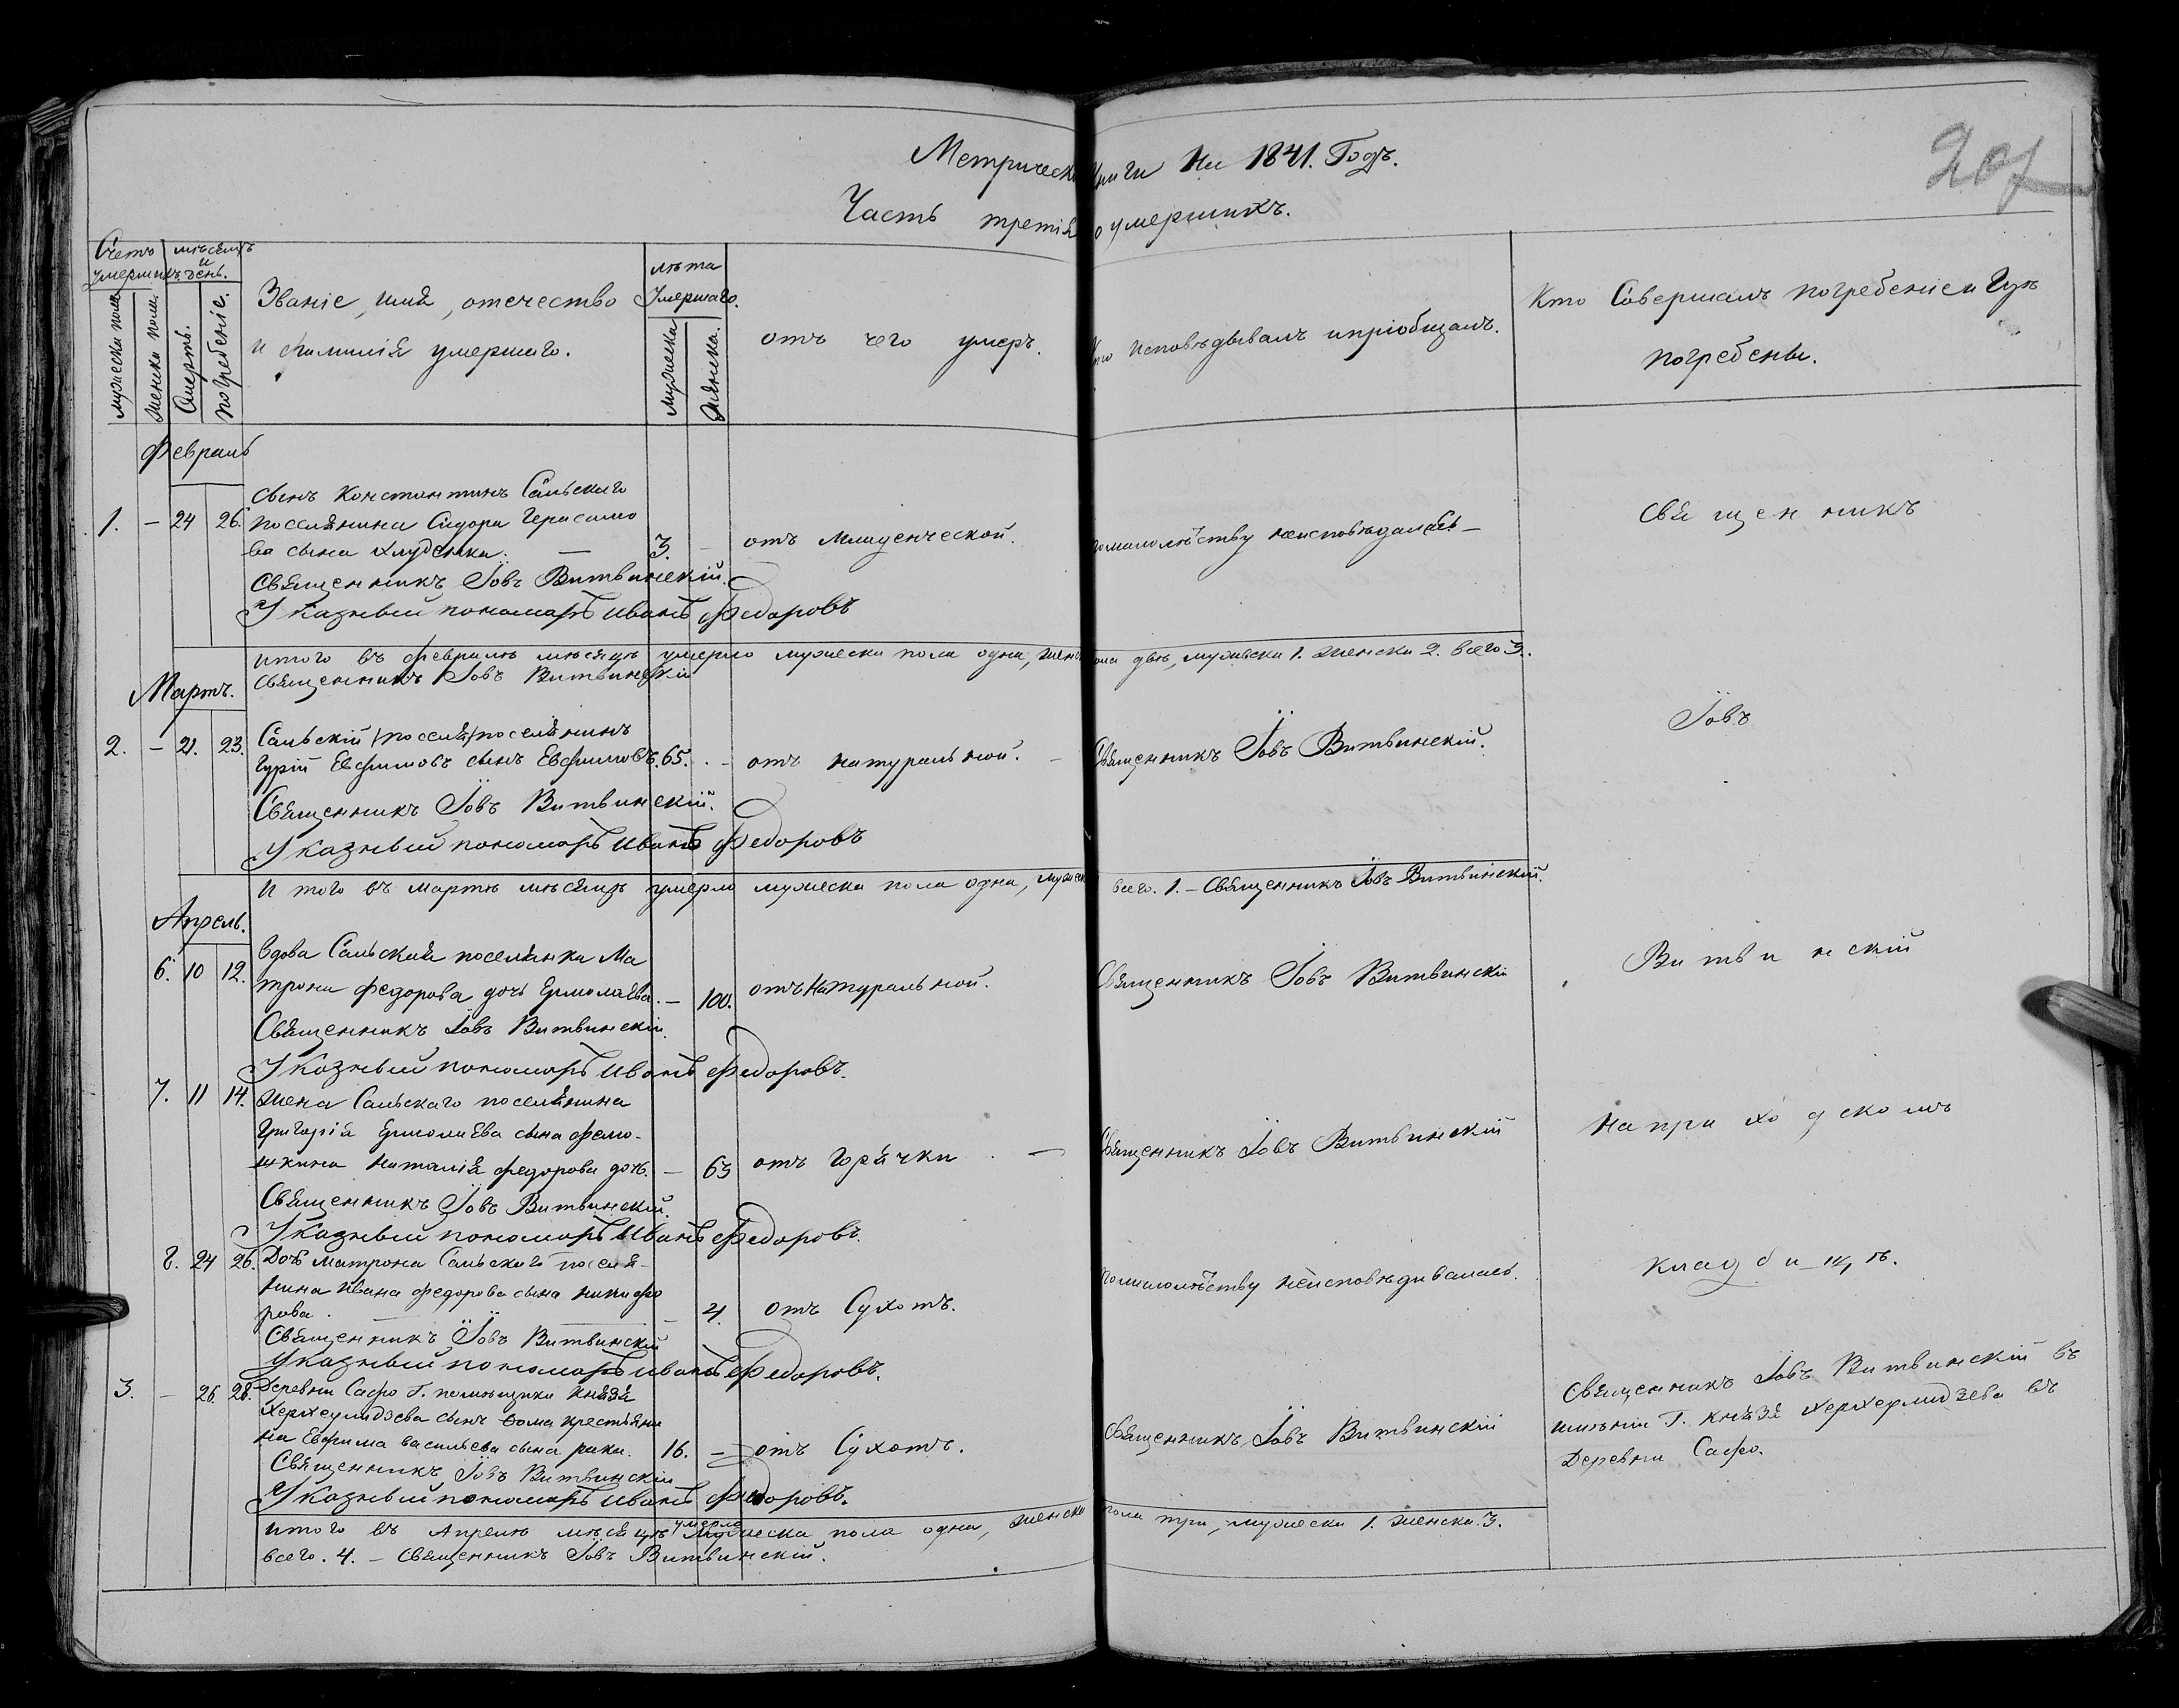 Метрическ книги на 1841. Годъ.
207
Часть третія о умершихъ.
Счетъ умершихъ
мѣсяцъ и день.
мужеска пола
женска пола
Смерть.
погребеніе.
Званіе, имя, отечество
и фамилія умершаго.
лѣта Умершаго.
мужеска
женска.
отъ чего умеръ.
Кто исповѣдывалъ и пріобщалъ.
Кто Совершалъ погребеніе и Гдѣ
погребены.
Февраль
1. – 24 26.
сынъ Константинъ Сальскаго
поселянина Сидора Герасимо
ва сына
3. –
отъ Младенческой.
помалолѣтству неисповѣдалась –
Священникъ Іовъ Витвинскій.
Указный пономарь Иванъ Федоровъ
итого въ февралѣ мѣсяцѣ умерло мужеска пола одна, женс пола двѣ, мужеска 1. женска 2. всего 3.
священникъ Іовъ Витвинскій
Мартъ.
2. – 21. 23.
Сальскій /поселя/ поселянинъ
Гурій Евфимовъ сынъ Евфимовъ. 65. –
отъ натуральной. –
Священникъ Іовъ Витвинскій.
Священникъ Іовъ Витвинскій.
Указный пономарь Иванъ Федоровъ
И того въ мартѣ мѣсяцѣ умерло мужеска пола одна, мужеск всего. 1. – Священникъ Іовъ Витвинскій.
Апрель.
6. 10 12.
вдова Сальская поселянка Ма
трона федорова дочь Ермолаева. – 100.
отъ натуральной.
Священникъ Іовъ Витвинскій
Священникъ Іовъ Витвинскій
Указный пономарь Иванъ Федоровъ.
7. 11 14.
жена Сальскаго поселянина
Григорія Ермолаева сына
Наталія федорова дочь. – 63
отъ Горячки –
Священникъ Іовъ Витвинскій
Священникъ Іовъ Витвинскій.
Указный пономарь Иванъ Федоровъ.
8. 24 26.
Дочь матрона Сальскаго поселя-
нина Ивана федорова сына никифо
рова. – 4.
отъ Сухотъ.
помалолѣтству неисповѣдивалась.
Священникъ Іовъ Витвинскій
Указный пономарь Иванъ Федоровъ.
3. – 26. 28.
Деревни Сафо Г. помѣщика Князя
Херхеулидзева сынъ Фома крестьяни
на Евфима васильева сына раки. 16. –
отъ Сухотъ.
Священникъ Іовъ Витвинскій
Священникъ Іовъ Витвинскій
Указный пономарь Иванъ Федоровъ.
итого въ Апрелѣ мѣсяцѣ умерло мужеска пола одна, женска пола три, мужеска 1. женска. 3.
всего. 4. – Священникъ Іовъ Витвинскій.
Священникъ
Іовъ
Витвинскій
На приходскомъ
кладби-щѣ.
Священникъ Іовъ Витвинскій въ
имѣніи Г. Князя Херхеулидзева въ
Деревни Сафо.